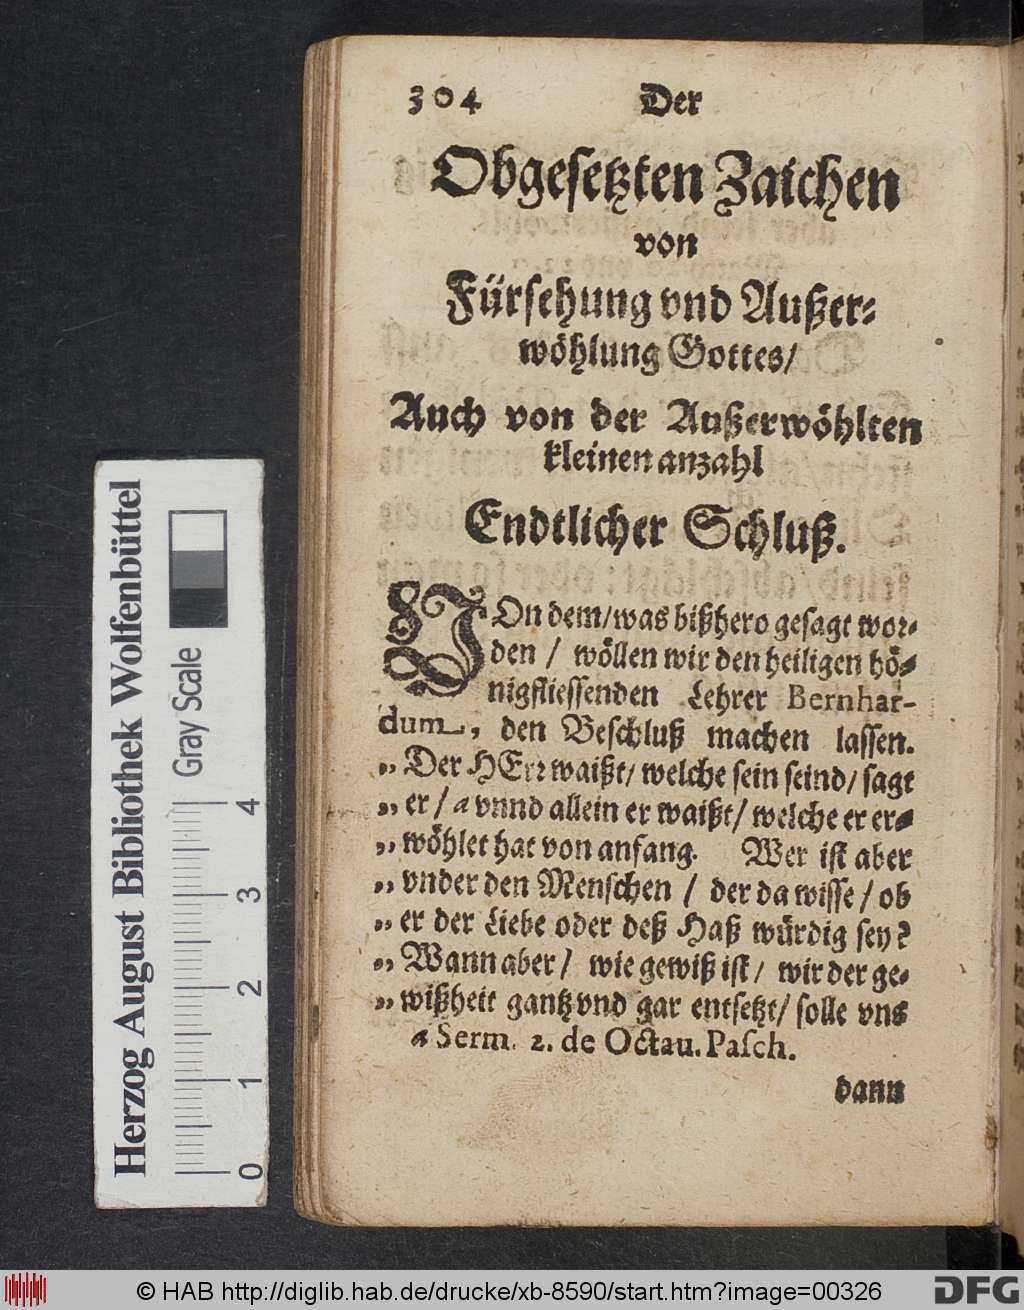 304 Der
Obgesetzten Zaichen
von
Fürsehung vnd Außer-
wöhlung Gottes/
Auch von der Außerwöhlten
kleinen anzahl
Endtlicher Schluß.
VOn dem/was bißhero gesagt wor-
den / wöllen wir den heiligen hö-
nigfliessenden Lehrer Bernhar-
dum, den Beschluß machen lassen.
„ Der HErr waißt/ welche sein seind/ sagt
„ er/ a vnnd allein er waißt/ welche er er-
„ wöhlet hat von anfang. Wer ist aber
„ vnder den Menschen / der da wisse / ob
„ er der Liebe oder deß Haß würdig sey?
„ Wann aber/ wie gewiß ist/ wir der ge-
„ wißheit gantz vnd gar entsetzt/ solle vns
a Serm. 2. de Octau. Pasch.
dann
Herzog August Bibliothek Wolfenbüttel
Gray Scale
0 1 2 3 4
© HAB http://diglib.hab.de/drucke/xb-8590/start.htm?image=00326
DFG